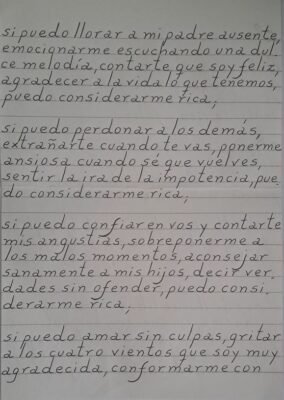 si puedo llorar a mi padre ausente,
emocionarme escuchando una dul-
ce melodía, contarte que soy feliz,
agradecer a la vida lo que tenemos,
puedo considerarme rica;
si puedo perdonar a los demás,
extrañarte cuando te vas, ponerme
ansiosa cuando sé que vuelves,
sentir la ira de la impotencia, pue-
do considerarme rica;
si puedo confiar en vos y contarte
mis angustias, sobreponerme a
los malos momentos, aconsejar
sanamente a mis hijos, decir ver-
dades sin ofender, puedo consi-
derarme rica;
si puedo amar sin culpas, gritar
a los cuatro vientos que soy muy
agradecida, conformarme con